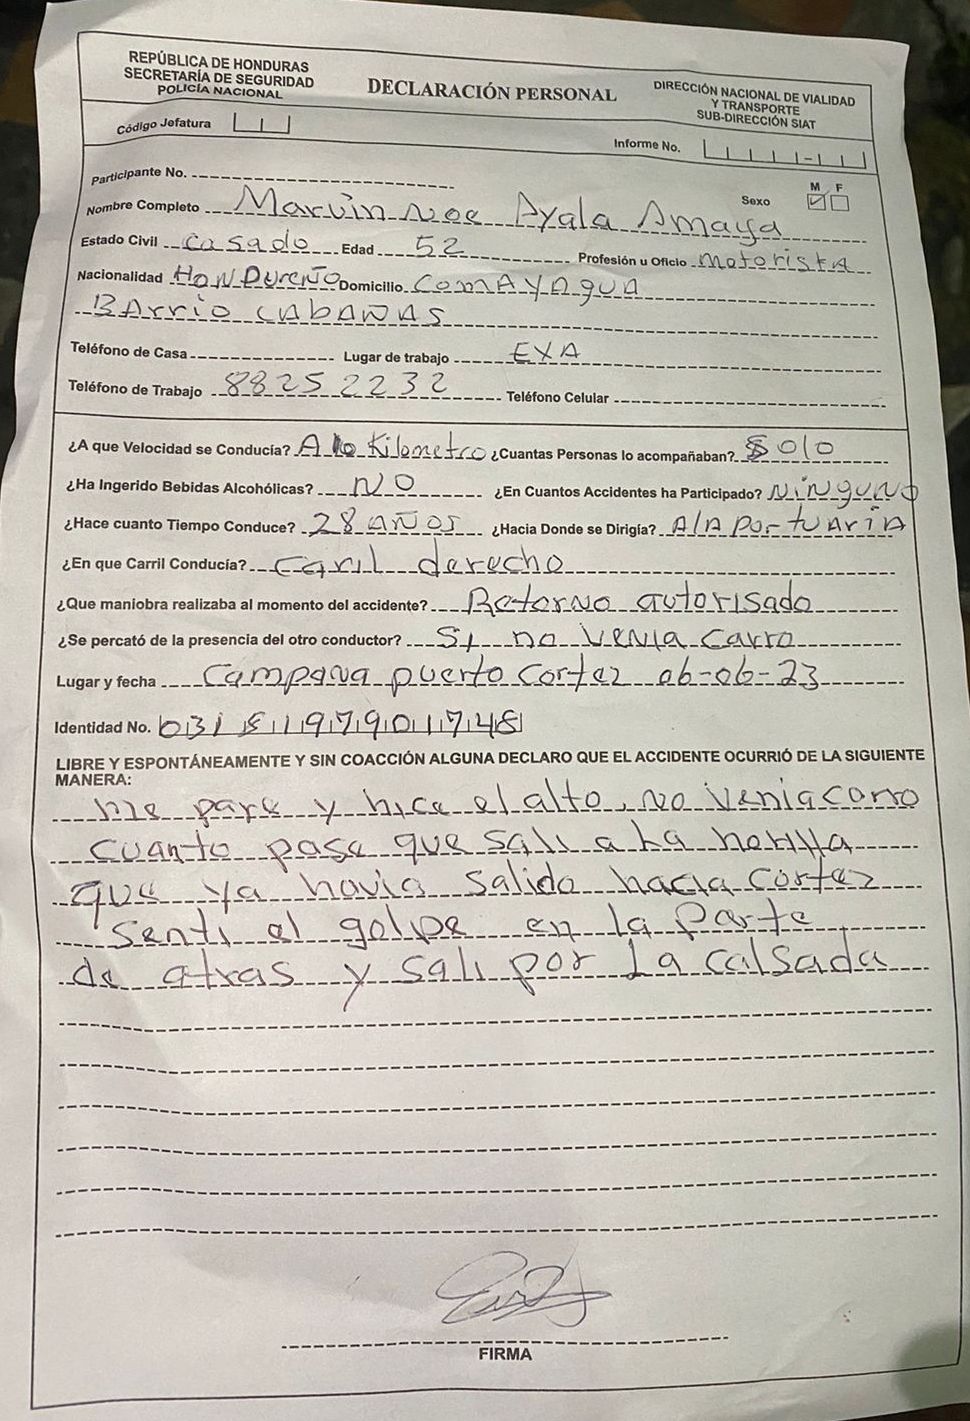 REPÚBLICA DE HONDURAS
SECRETARÍA DE SEGURIDAD
POLICÍA NACIONAL
DECLARACIÓN PERSONAL
DIRECCIÓN NACIONAL DE VIALIDAD
Y TRANSPORTE
SUB-DIRECCIÓN SIAT
Código Jefatura
Informe No.
Participante No.
Sexo M F
Nombre Completo Marvin Noe Ayala Amaya
Estado Civil casado Edad 52 Profesión u Oficio motoristA
Nacionalidad HONDUREÑO Domicilio comAyAguA
BArrio CAbAÑAS
Teléfono de Casa Lugar de trabajo EXA
Teléfono de Trabajo 88252232 Teléfono Celular
¿A que Velocidad se Conducía? A 10 Kilometro ¿Cuantas Personas lo acompañaban? Solo
¿Ha Ingerido Bebidas Alcohólicas? NO ¿En Cuantos Accidentes ha Participado? NiNguNo
¿Hace cuanto Tiempo Conduce? 28 años ¿Hacia Donde se Dirigía? A lA portuAriA
¿En que Carril Conducía? caril derecho
¿Que maniobra realizaba al momento del accidente? Retorno autorisado
¿Se percató de la presencia del otro conductor? Si no venia carro
Lugar y fecha Campana puerto cortez 06-06-23
Identidad No.
LIBRE Y ESPONTÁNEAMENTE Y SIN COACCIÓN ALGUNA DECLARO QUE EL ACCIDENTE OCURRIÓ DE LA SIGUIENTE
MANERA:
me pare y hice el alto, no venia carro
cuanto pase que sali a la
que ya havia salido hacia cortez
senti el golpe en la parte
de atras y sali por la calsada
FIRMA